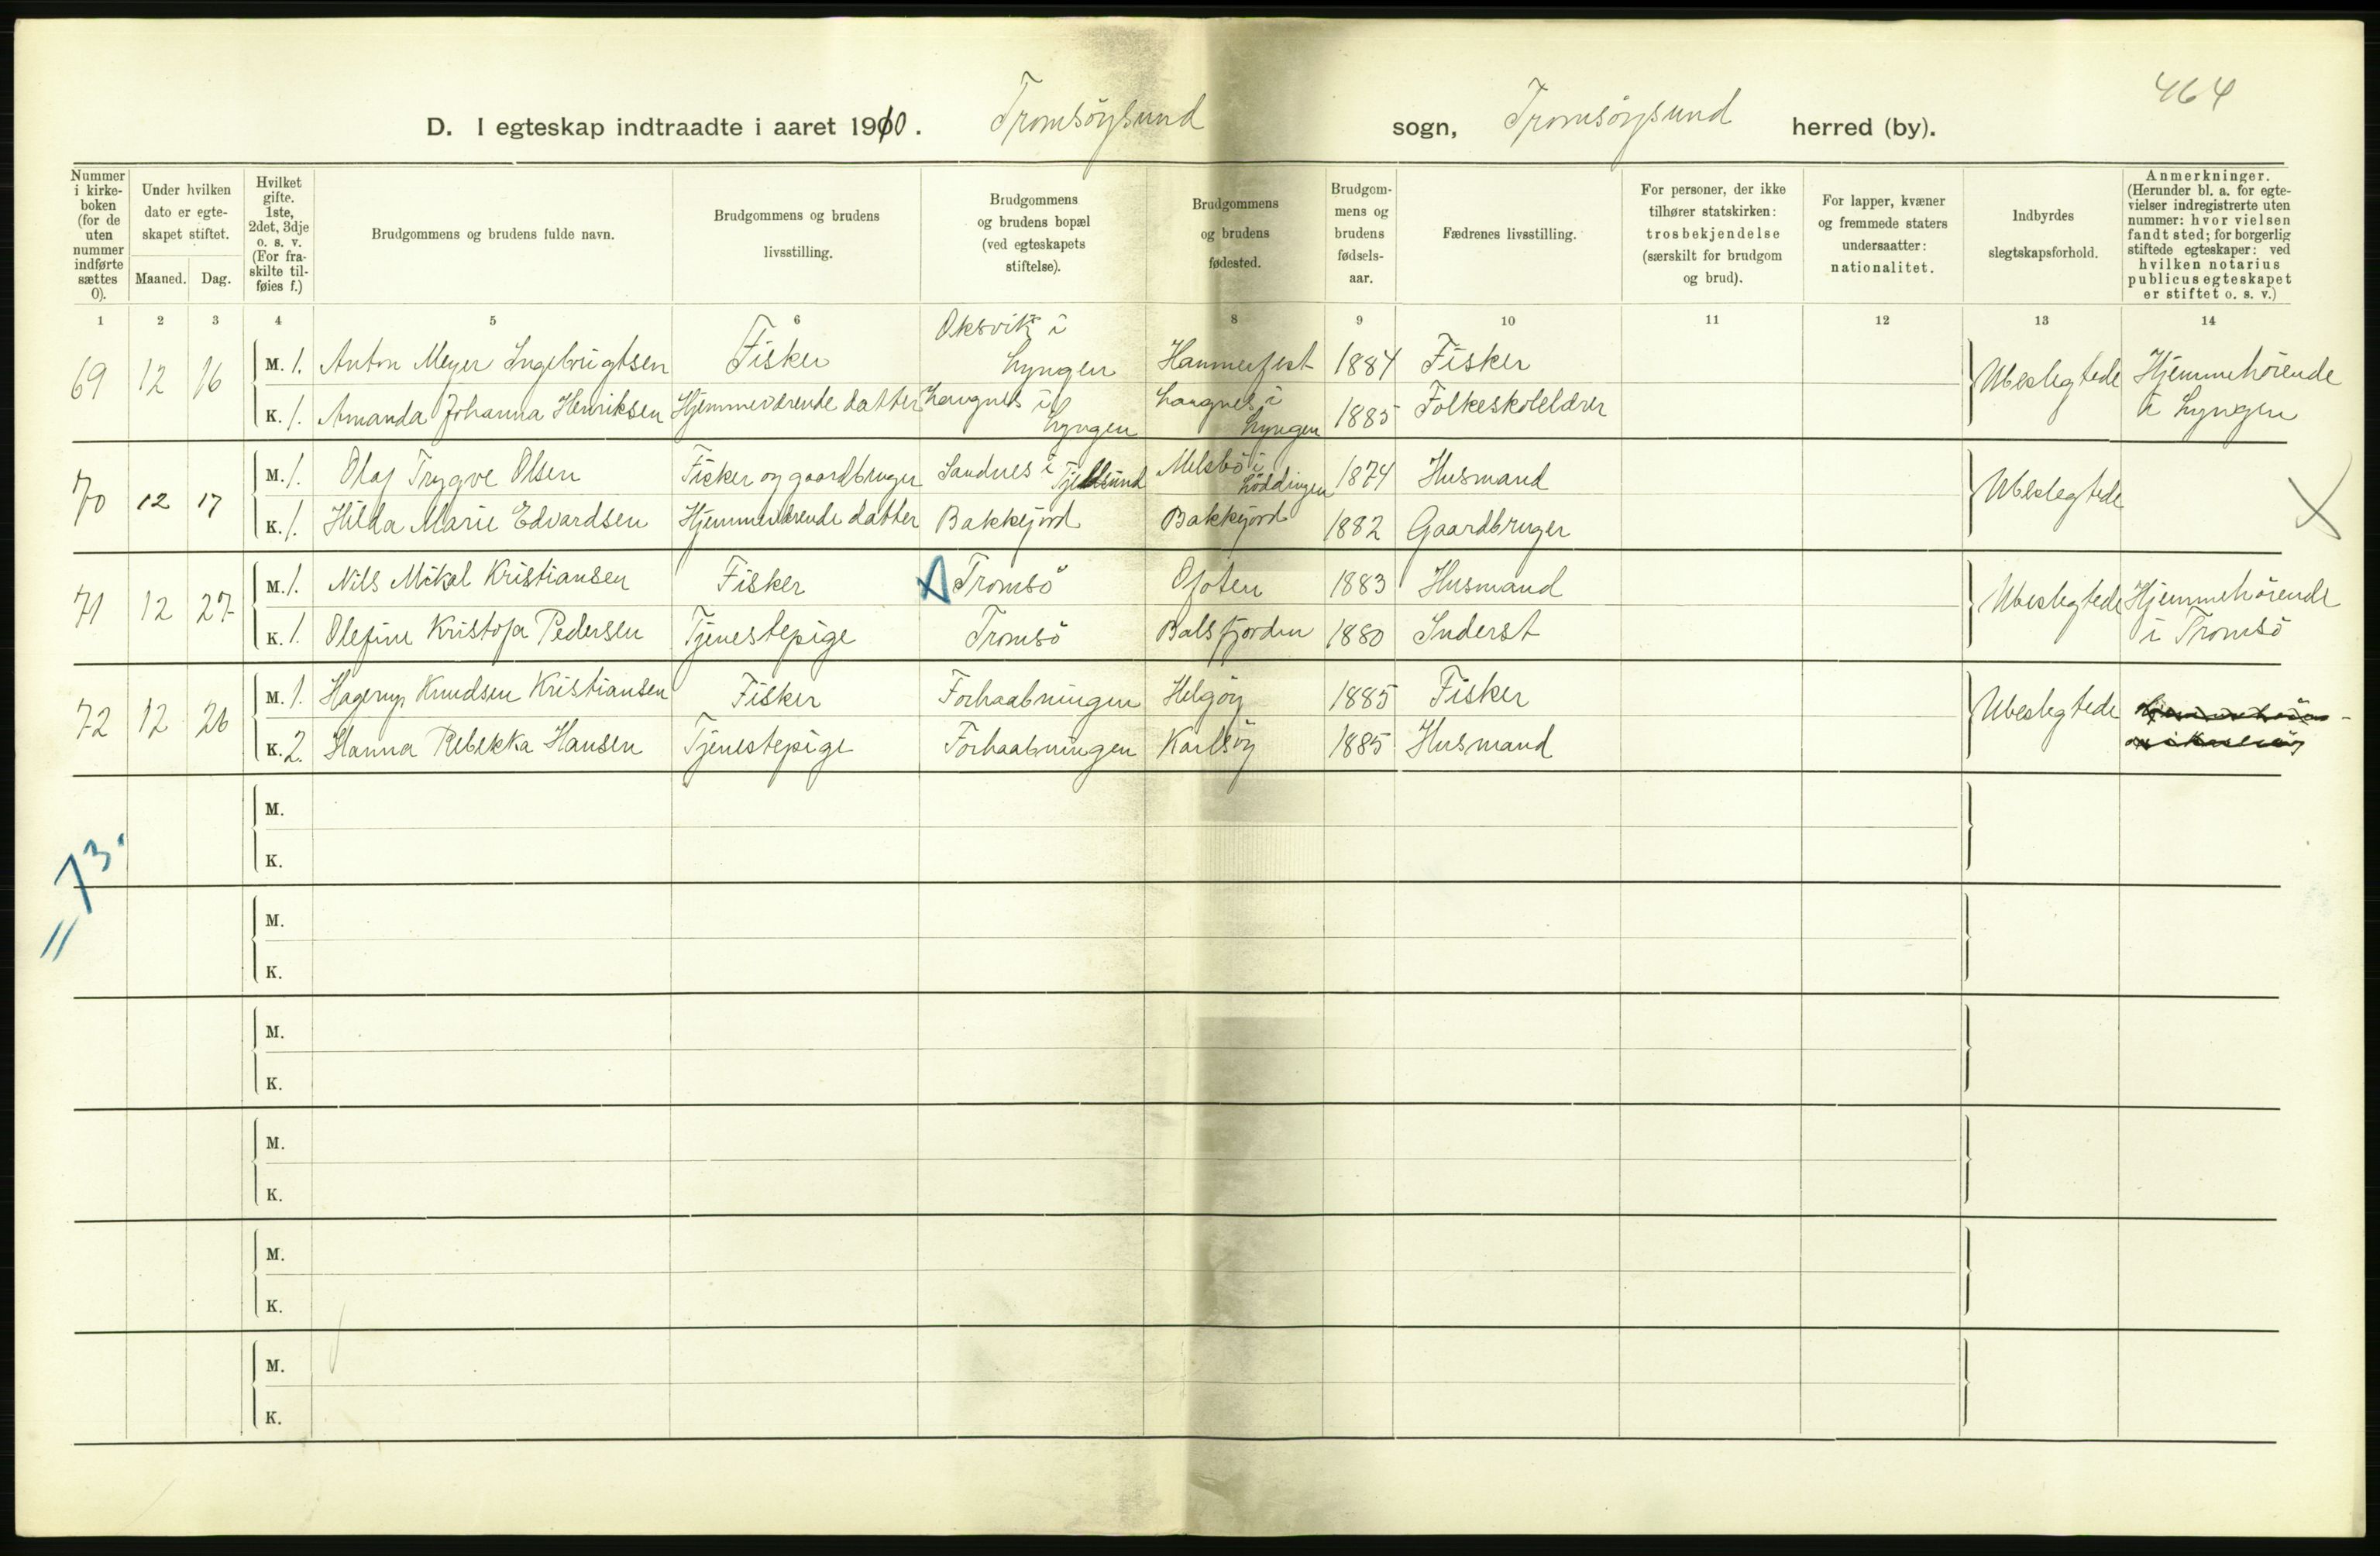 464
D. I egteskap indtraadte i aaret 1910. Tromsöysund sogn, Tromsöysund herred (by).
Nummer i kirke-boken (for de uten nummer indførte sættes 0). Under hvilken dato er egte-skapet stiftet. Maaned. Dag. Hvilket gifte. 1ste, 2det, 3dje o. s. v. (For fra-skilte til-føies f.) Brudgommens og brudens fulde navn. Brudgommens og brudens livsstilling. Brudgommens og brudens bopæl (ved egteskapets stiftelse). Brudgommens og brudens fødested. Brudgom-mens og brudens fødsels-aar. Fædrenes livsstilling. For personer, der ikke tilhører statskirken: trosbekjendelse (særskilt for brudgom og brud). For lapper, kvæner og fremmede staters undersaatter: nationalitet. Indbyrdes slegtskapsforhold. Anmerkninger. (Herunder bl. a. for egte-vielser indregistrerte uten nummer: hvor vielsen fandt sted; for borgerlig stiftede egteskaper: ved hvilken notarius publicus egteskapet er stiftet o. s. v.)
1 2 3 4 5 6 7 8 9 10 11 12 13 14
69 12 16 M. 1. Anton Meyer Ingebrigtsen Fisker Oksvik i Lyngen Hammerfest 1884 Fisker Ubeslegtede Hjemmehörende i Lyngen
K. 1. Amanda Johanna Henriksen Hjemmeværende datter Langnes i Lyngen Langnes i Lyngen 1885 Folkeskolelærer
70 12 17 M. 1. Olaf Trygve Olsen Fisker og gaardbruger Sandnes i Tjeldsund Melsbö i Löddingen 1874 Husmand Ubeslegtede
K. 1. Hilda Marie Edvardsen Hjemmeværende datter Bakkejord Bakkejord 1882 Gaardbruger
71 12 27 M. 1. Nils Mikal Kristiansen Fisker Tromsö Ofoten 1883 Husmand Ubeslegtede Hjemmehörende i Tromsö
K. 1. Olefine Kristofa Pedersen Tjenestepige Tromsö Balsfjorden 1880 Inderst
72 12 26 M. 1. Hagerup Knudsen Kristiansen Fisker Forhaabningen Helgöy 1885 Fisker Ubeslegtede
K. 2. Hanna Rebekka Hansen Tjenestepige Forhaabningen Karlsöy 1885 Husmand
M.
73.
K.
M.
K.
M.
K.
M.
K.
M.
K.
M.
K.